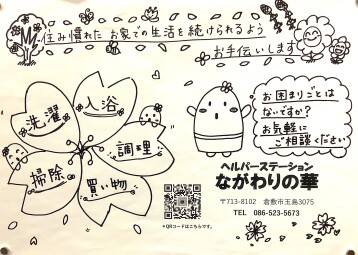 住み慣れた お家での生活を続けられるよう
お手伝いします
洗濯
入浴
調理
掃除
買い物
お困りごとは
ないですか?
お気軽に
ご相談ください
ヘルパーステーション
ながわりの華
〒713-8102 倉敷市玉島3075
TEL 086-523-5673
*QRコードはこちらです。